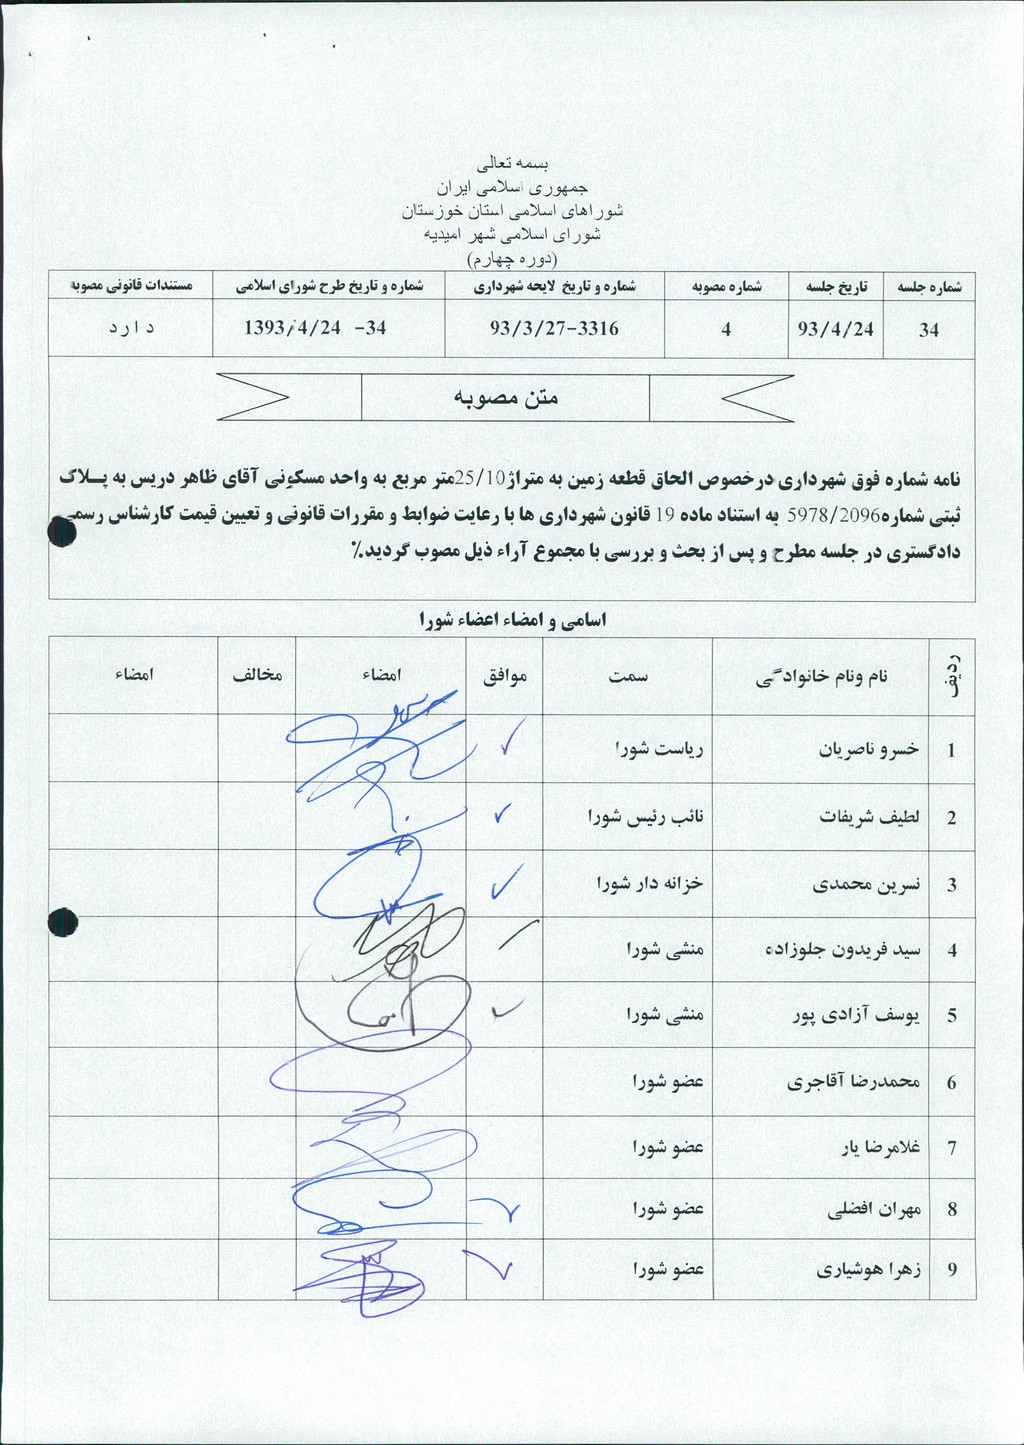 بسمه تعالی
جمهوری اسلامی ایران
شوراهای اسلامی استان خوزستان
شورای اسلامی شهر امیدیه
(دوره چهارم)
شماره جلسه تاریخ جلسه شماره مصوبه شماره و تاریخ لایحه شهرداری شماره و تاریخ طرح شورای اسلامی مستندات قانونی مصوبه
34 93/4/24 4 93/3/27-3316 1393/4/24 -34 دارد
متن مصوبه
نامه شماره فوق شهرداری درخصوص الحاق قطعه زمین به متراژ25/10متر مربع به واحد مسکونی آقای ظاهر دریس به پلاک
ثبتی شماره5978/2096 به استناد ماده 19 قانون شهرداری ها با رعایت ضوابط و مقررات قانونی و تعیین قیمت کارشناس رسمی
دادگستری در جلسه مطرح و پس از بحث و بررسی با مجموع آراء ذیل مصوب گردید.٪
اسامی و امضاء اعضاء شورا
ردیف نام ونام خانوادگی سمت موافق امضاء مخالف امضاء
1 خسرو ناصریان ریاست شورا
2 لطیف شریفات نائب رئیس شورا
3 نسرین محمدی خزانه دار شورا
4 سید فریدون جلوزاده منشی شورا
5 یوسف آزادی پور منشی شورا
6 محمدرضا آقاجری عضو شورا
7 غلامرضا یار عضو شورا
8 مهران افضلی عضو شورا
9 زهرا هوشیاری عضو شورا